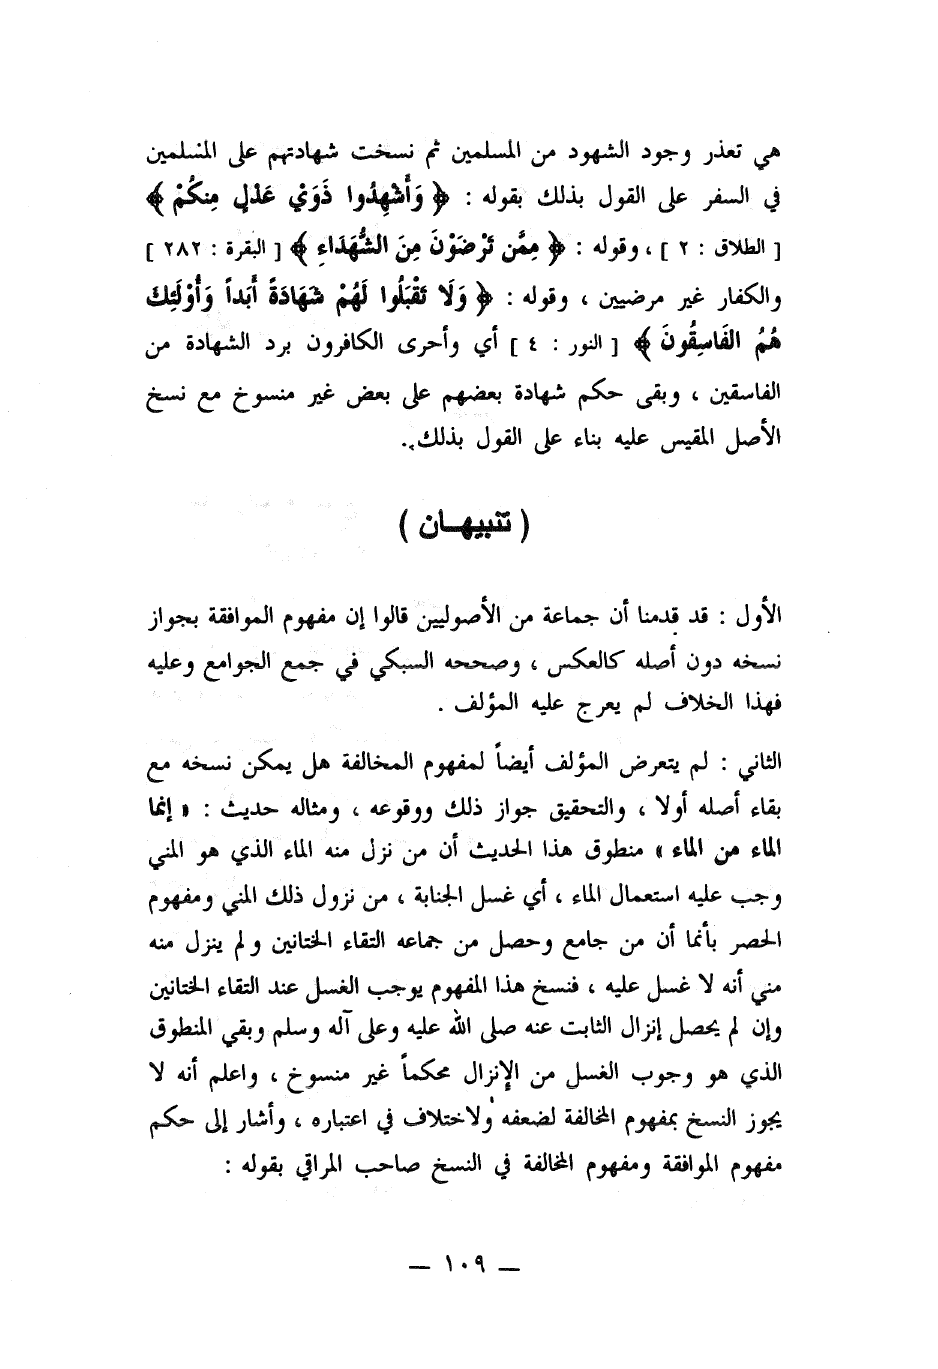 هي تعذر وجود الشهود من المسلمين ثم نسخت شهادتهم على المسلمين
في السفر على القول بذلك بقوله : ﴿ وَأَشْهِدُوا ذَوَيْ عَدْلٍ مِنكُمْ ﴾
[ الطلاق : ٢ ] ، وقوله : ﴿ مِمَّن تَرْضَوْنَ مِنَ الشُّهَدَاءِ ﴾ [ البقرة : ٢٨٢ ]
والكفار غير مرضيين ، وقوله : ﴿ وَلَا تَقْبَلُوا لَهُمْ شَهَادَةً أَبَداً وَأُوْلَئِكَ
هُمُ الفَاسِقُونَ ﴾ [ النور : ٤ ] أي وأحرى الكافرون برد الشهادة من
الفاسقين ، وبقى حكم شهادة بعضهم على بعض غير منسوخ مع نسخ
الأصل المقيس عليه بناء على القول بذلك .
( تنبيهـان )
الأول : قد قدمنا أن جماعة من الأصوليين قالوا إن مفهوم الموافقة بجواز
نسخه دون أصله كالعكس ، وصححه السبكي في جمع الجوامع وعليه
فهذا الخلاف لم يعرج عليه المؤلف .
الثاني : لم يتعرض المؤلف أيضاً لمفهوم المخالفة هل يمكن نسخه مع
بقاء أصله أولا ، والتحقيق جواز ذلك ووقوعه ، ومثاله حديث : « إنما
الماء من الماء » منطوق هذا الحديث أن من نزل منه الماء الذي هو المني
وجب عليه استعمال الماء ، أي غسل الجنابة ، من نزول ذلك المني ومفهوم
الحصر بأنما أن من جامع وحصل من جماعه التقاء الختانين ولم ينزل منه
مني أنه لا غسل عليه ، فنسخ هذا المفهوم يوجب الغسل عند التقاء الختانين
وإن لم يحصل إنزال الثابت عنه صلى الله عليه وعلى آله وسلم وبقي المنطوق
الذي هو وجوب الغسل من الإنزال محكماً غير منسوخ ، واعلم أنه لا
يجوز النسخ بمفهوم المخالفة لضعفه ولاختلاف في اعتباره ، وأشار إلى حكم
مفهوم الموافقة ومفهوم المخالفة في النسخ صاحب المراقي بقوله :
— ١٠٩ —